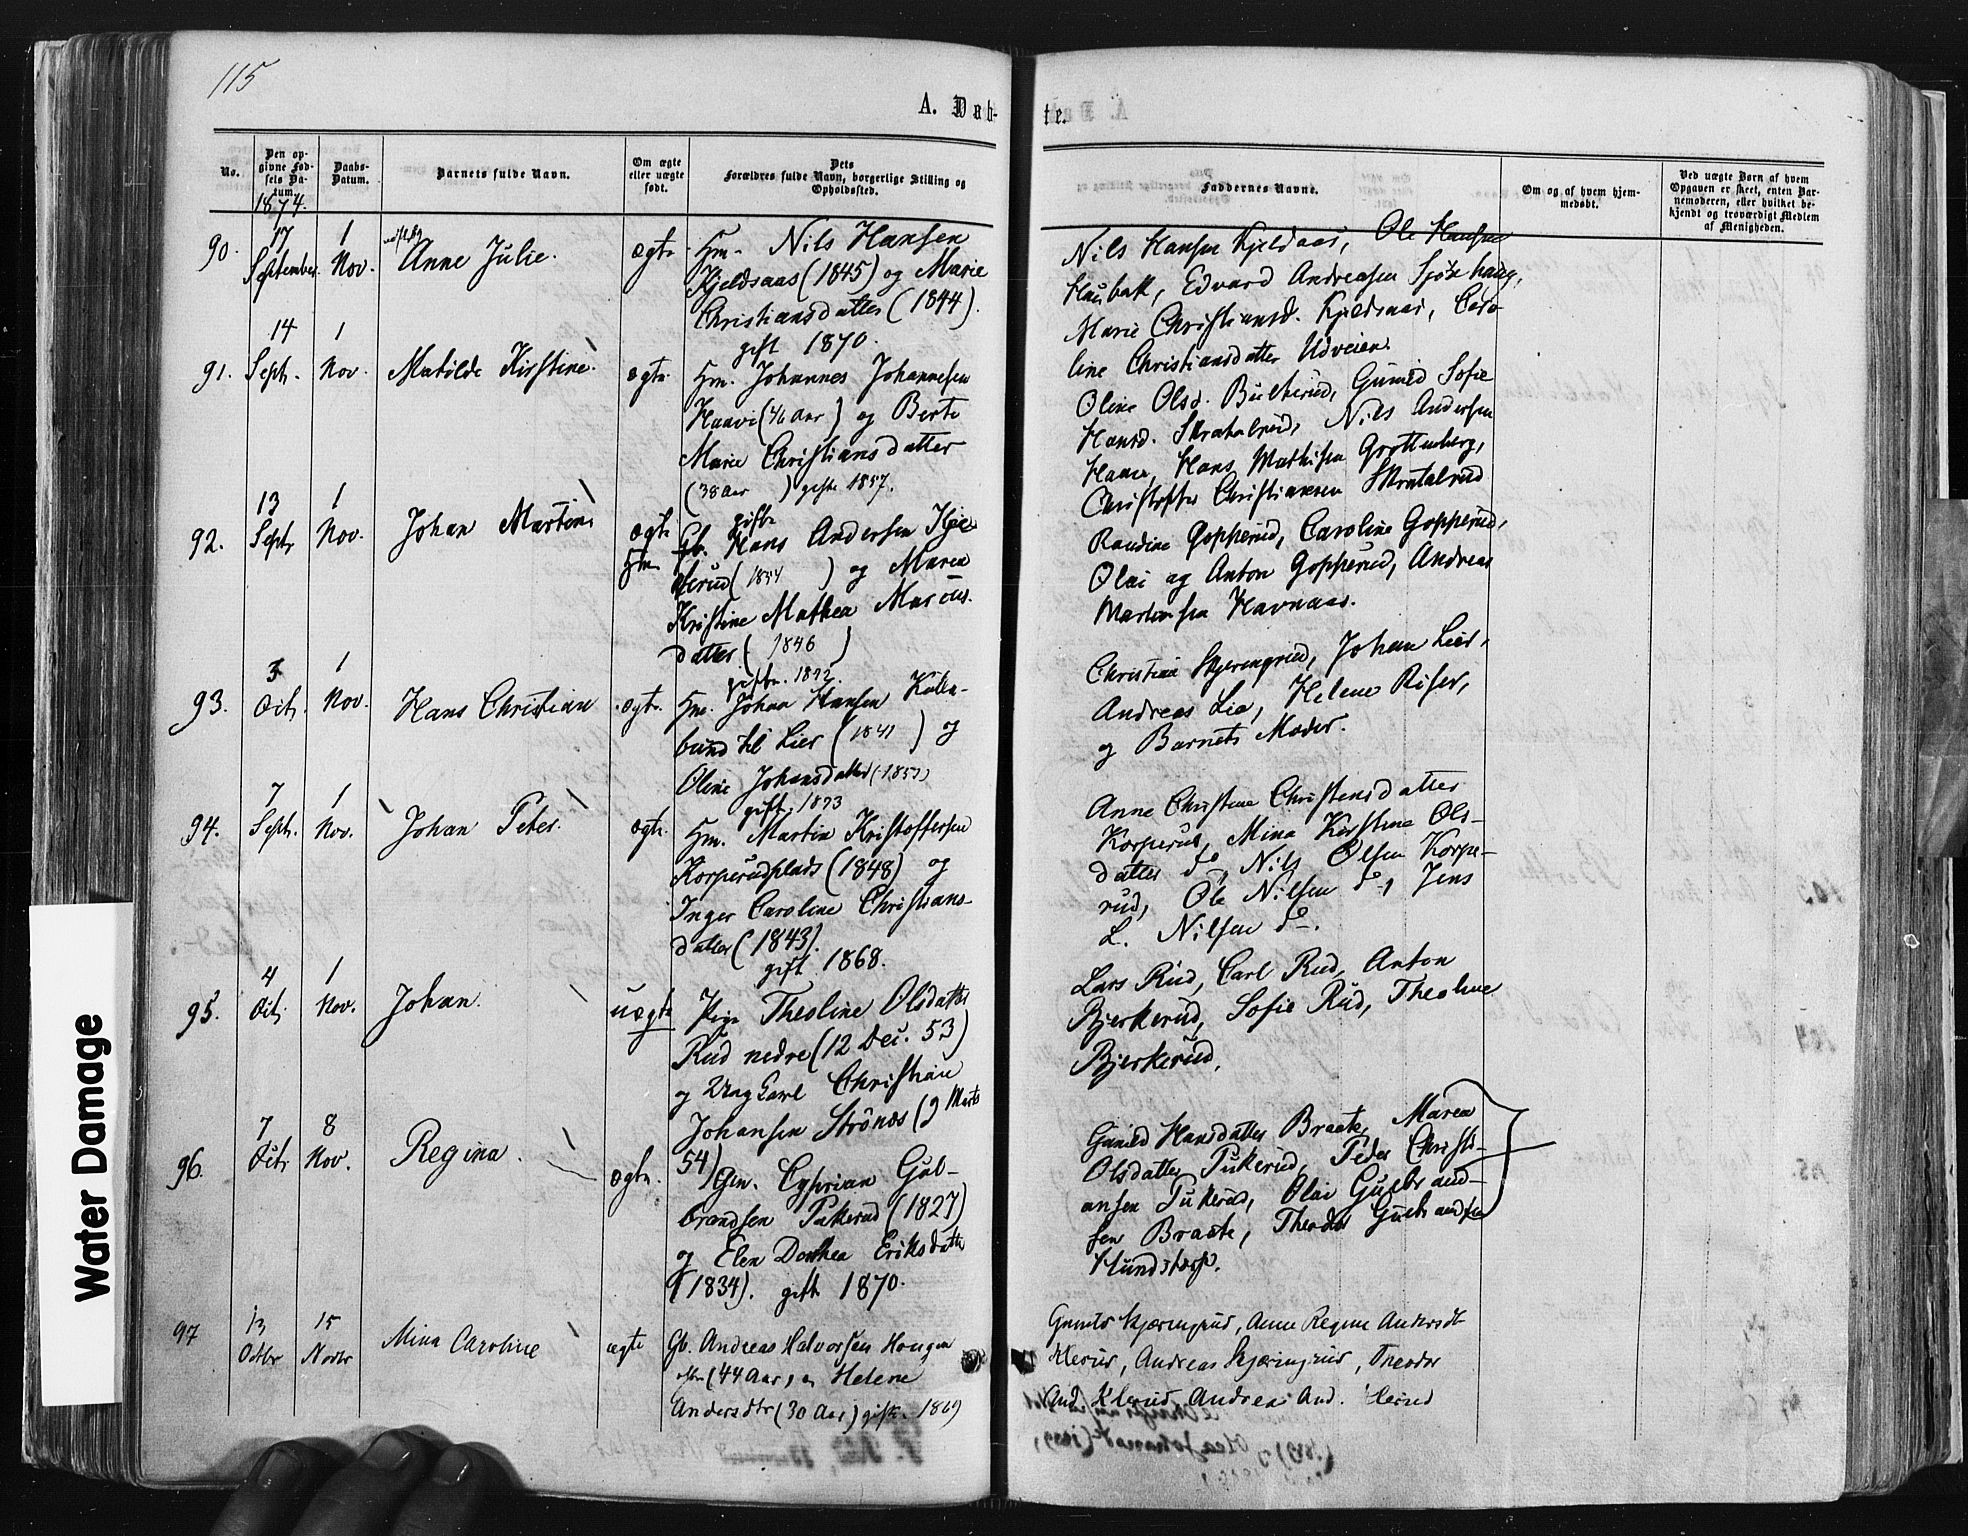 115
A. Daab-
te.
No.
Den op-
givne Fød-
sels Da-
tum.
1874.
Daabs-
Datum.
Barnets fulde Navn.
Om ægte
eller uægte
født.
Dets
Forældres fulde Navn, borgerlige Stilling og
Opholdssted.
Faddernes Navne.
Om og af hvem hjem-
medøbt.
Ved uægte Børn af hvem
Opgaven er skeet, enten Bar-
nemoderen, eller hvilket be-
kjendt og troværdigt Medlem
af Menigheden.
90.
17
September
1
Nov.
Anne Julie.
ægte
Hm. Nils Hansen
Kjeldsaas (1845) og Marie
Christiansdatter (1844).
gift 1870.
Nils Hansen Kjeldsaas, Ole Hansen
Haubak, Edvard Andreasen
Marie Christiansd. Kjeldsaas, Caro-
line Christiansdatter Udveien.
91.
14
Sept.
1
Nov.
Matilde Kirstine.
ægte
Hm. Johannes Johannesen
Haavi (46 Aar) og Berte
Marie Christiansdatter
(38 Aar) gifte 1857.
Oline Olsd. Bulkerud, Gunild Sofie
Hansd. Skratalrud, Nils Andersen
Hans Mathisen Grottenberg,
Christoffer Christiansen Skratalrud
92.
13
Septr
1
Nov.
Johan Martin
ægte
Hm
gifte
Gb. Hans Andersen
(1854) og Maren
Kristine Mathea Marcus-
datter (1846)
gifte. 1872.
Randine Gopperud, Caroline Gopperud,
Olai og Anton Gopperud, Andreas
Martinsen Havnaas.
93.
3
Oct.
1
Nov.
Hans Christian
ægte
Hm. Johan Hansen Kolle-
bund til Lier (1841) og
Oline Johansdatter (1851)
gift. 1873
Christine Skjeringrud, Johan Lier,
Andreas Lie, Helene Riser,
og Barnets Moder.
94.
7
Sept.
1
Nov.
Johan Peter.
ægte
Hm. Martin Kristoffersen
Korperudplads (1848) og
Inger Caroline Christians-
datter (1843).
gift 1868.
Anne Christine Christensdatter
Korperud, Mina Kirstine Ols-
datter do, Nils Olsen Korpe-
rud, Ole Nilsen do, Jens
L. Nilsen do.
95.
4
Oct.
1
Nov.
Johan.
uægte
Pige Theoline Olsdatter
Rud nedre (12 Dec. 53)
og Ung Carl Christian
Johansen Strönæs (9 Marts
54)
Lars Rud, Carl Rud, Anton
Bjerkerud, Sofie Rud, Theoline
Bjerkerud.
96.
7
Octr
8
Nov.
Regina.
ægte.
Gm. Cyprian Gul-
brandsen Tukerud (1827)
og Elen Dorthea Eriksdatter
(1834). gift 1870.
Gunild Hansdatter Braate, Maren
Olsdatter Tukerud, Peder Christi-
ansen Tukerud, Olai Gulbrand-
sen Braate, Theodor Gulbrandsen
Hundstorp.
97
13
Octbr
15
Novbr
Mina Caroline
ægte
Gb. Andreas Halvorsen Hougen
(44 Aar) og Helene
Andersdtr (30 Aar) gifte. 1869
Skjæringrud, Anne Regine Andersdt
Klerud, Andreas Skjæringrud, Theodor
And. Klerud, Andrea And. Klerud
Water Damage